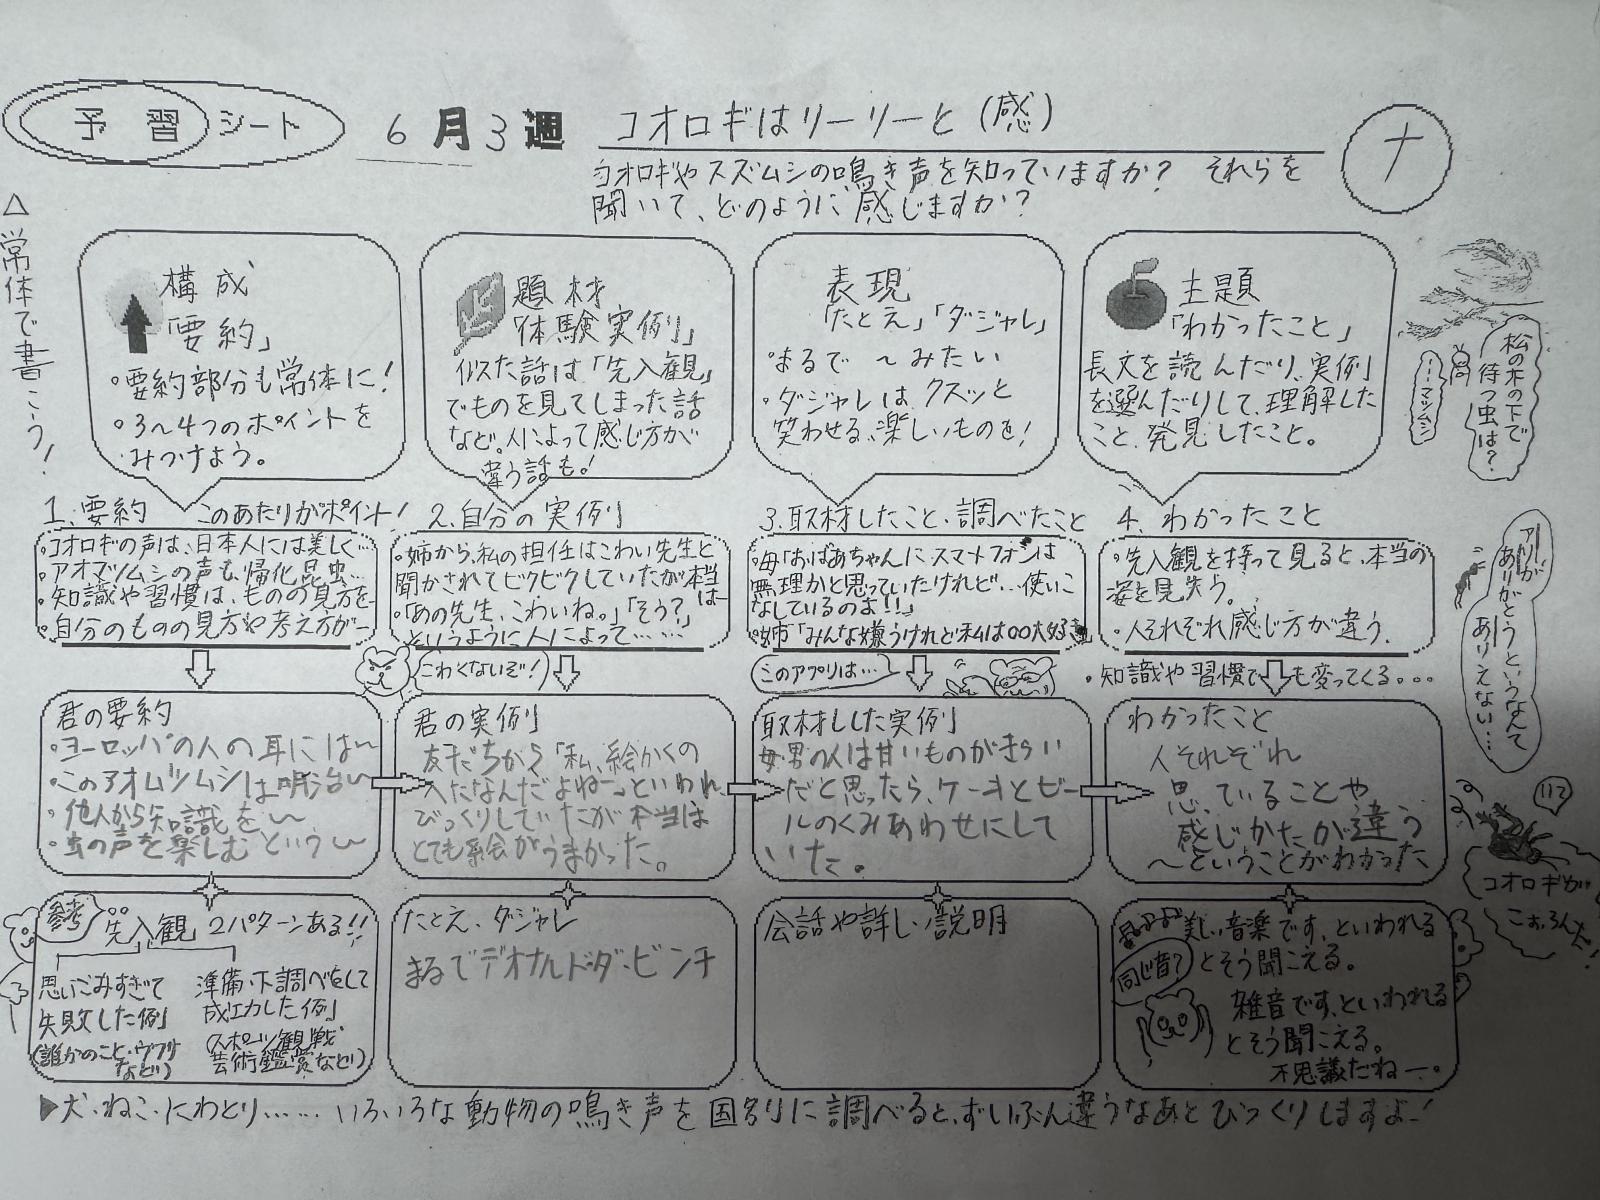 予習シート
6月3週
コオロギはリーリーと(感)
ナ
コオロギやスズムシの鳴き声を知っていますか? それらを
聞いて、どのように感じますか?
△常体で書こう!
構成
「要約」
・要約部分も常体に!
・3〜4つのポイントを
みつけよう。
題材
「体験実例」
似た話は「先入観」
でものを見てしまった話
など。人によって感じ方が
違う話も!
表現
「たとえ」「ダジャレ」
・まるで 〜みたい
・ダジャレは、クスッと
笑わせる、楽しいものを!
主題
「わかったこと」
長文を読んだり、実例
を選んだりして、理解した
こと、発見したこと。
松の木の下で
待つ虫は?
マツムシ
1.要約 このあたりがポイント!
・コオロギの声は、日本人には美しく…
・アオマツムシの声も、帰化昆虫…
・知識や習慣は、ものの見方を…
・自分のものの見方や考え方が…
2.自分の実例
・姉から、私の担任はこわい先生と
聞かされてビクビクしていたが本当は…
・「あの先生、こわいね。」「そう?」
というように人によって………
3.取材したこと・調べたこと
・母「おばあちゃんにスマートフォンは
無理かと思っていたけれど…使いこ
なしているのよ!!」
・姉「みんな嫌うけれど私は○○大好き
4.わかったこと
・先入観を持って見ると、本当の
姿を見失う。
・人それぞれ感じ方が違う。
・知識や習慣で も変ってくる…
こわくないぞ!
このアプリは…
アリが
ありがとうというなんて
ありえない…
君の要約
・ヨーロッパの人の耳には〜
・このアオムツムシは明治〜
・他人から知識を〜
・虫の声を楽しむという〜
君の実例
友だちから「私、絵かくの
へたなんだよねー」といわれ、
びっくりしていたが本当は
とても絵がうまかった。
取材した実例
母・男の人は甘いものがきらい
だと思ったら、ケーキとビー
ルのくみあわせにして
いた。
わかったこと
人それぞれ
思っていることや
感じかたが違う
〜ということがわかった
コオロギが
参考 先入観 2パターンある!!
思いこみすぎて
失敗した例
(誰かのこと・ウワサ
など)
準備・下調べをして
成功した例
(スポーツ観戦
芸術鑑賞など)
たとえ、ダジャレ
まるでデオナルド・ダ・ビンチ
会話や詳しい説明
美しい音楽です、といわれる
とそう聞こえる。
同じ音?
雑音です、といわれる
とそう聞こえる。
不思議だねー。
▶犬・ねこ・にわとり……いろいろな動物の鳴き声を国別に調べると、ずいぶん違うなあとびっくりしますよ!